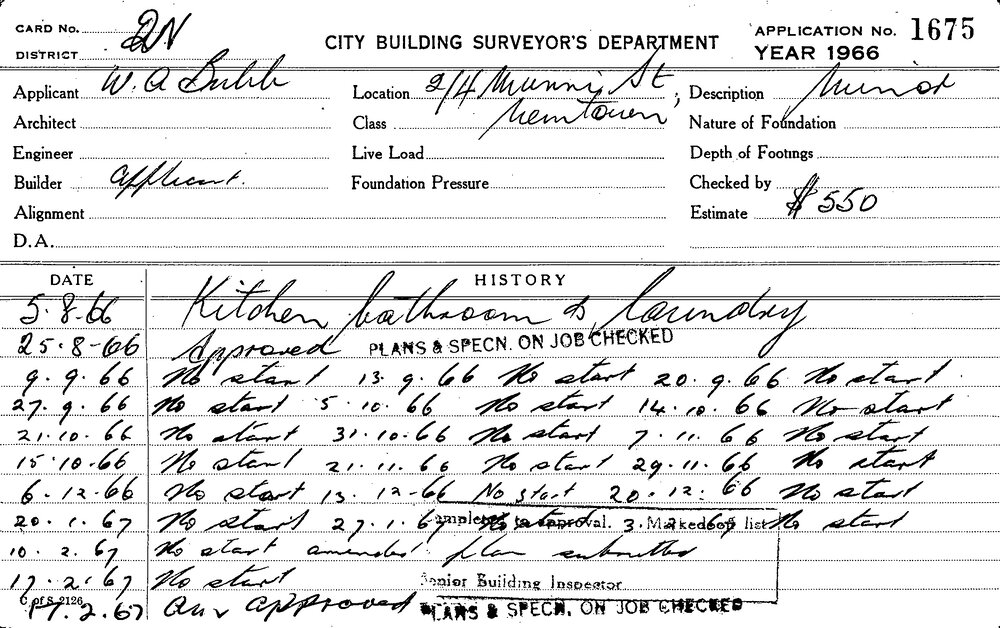 CARD No. 2N
DISTRICT
CITY BUILDING SURVEYOR'S DEPARTMENT
APPLICATION No. 1675
YEAR 1966
Applicant W. A Bubb
Location 2/4 Munni St,
Description Minor
Architect
Class Newtown
Nature of Foundation
Engineer
Live Load
Depth of Footings
Builder applicant.
Foundation Pressure
Checked by
Alignment
Estimate $550
D.A.
DATE HISTORY
5.8.66 Kitchen bathroom & laundry
25.8-66 Approved PLANS & SPECN. ON JOB CHECKED
9.9.66 No start 13.9.66 No start 20.9.66 No start
27.9.66 No start 5.10.66 No start 14.10.66 No start
21.10.66 No start 31.10.66 No start 7.11.66 No start
15.10.66 No start 21.11.66 No start 29.11.66 No start
6.12.66 No start 13.12-66 No start 20.12.66 No start
20.1.67 No start 27.1.67 No start 3.2.67 No start
Completed to approval. Marked off list
10.2.67 No start amended plan submitted
17.2.67 No start
Senior Building Inspector
C of S 2126
17.2.67 approved PLANS & SPECN. ON JOB CHECKED